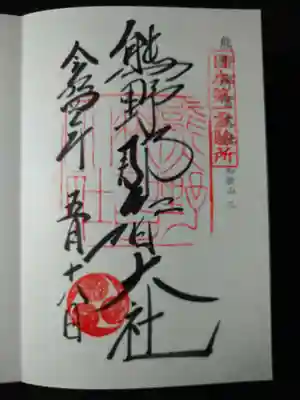 日本第一霊験所
熊野那智大社
令和四年 五月十八日